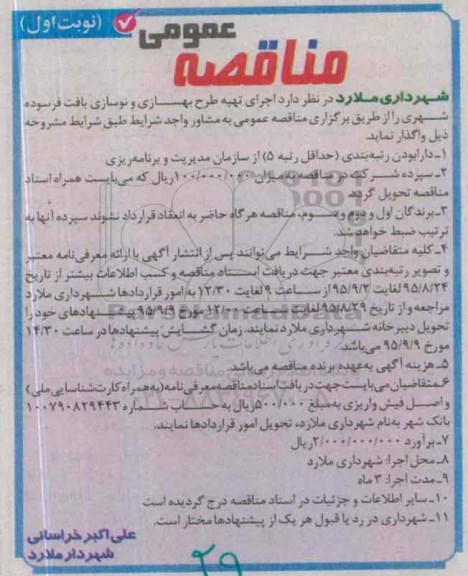 (نوبت اول)
عمومی
مناقصه
شهرداری ملارد در نظر دارد اجرای تهیه طرح بهسازی و نوسازی بافت فرسوده
شهری را از طریق برگزاری مناقصه عمومی به مشاور واجد شرایط طبق شرایط مشروحه
ذیل واگذار نماید.
۱ـ دارابودن رتبه‌بندی (حداقل رتبه ۵) از سازمان مدیریت و برنامه‌ریزی
۲ـ سپرده شرکت در مناقصه به میزان ۱۰۰/۰۰۰/۰۰۰ریال که می‌بایست همراه اسناد
مناقصه تحویل گردد.
۳ـ برندگان اول و دوم و سوم، مناقصه هرگاه حاضر به انعقاد قرارداد نشوند سپرده آنها به
ترتیب ضبط خواهد شد.
۴ـ کلیه متقاضیان واجد شرایط می‌توانند پس از انتشار آگهی با ارائه معرفی‌نامه معتبر
و تصویر رتبه‌بندی معتبر جهت دریافت اسناد مناقصه و کسب اطلاعات بیشتر از تاریخ
۹۵/۸/۲۴ لغایت ۹۵/۹/۲ از ساعت ۹ لغایت ۱۲/۳۰ به امور قراردادها شهرداری ملارد
مراجعه و از تاریخ ۹۵/۸/۲۹ لغایت ساعت ۱۲/۰۰ مورخ ۹۵/۹/۹ پیشنهادهای خود را
تحویل دبیرخانه شهرداری ملارد نمایند. زمان گشایش پیشنهادها در ساعت ۱۴/۳۰
مورخ ۹۵/۹/۹ می‌باشد.
۵ـ هزینه آگهی به‌عهده برنده مناقصه می‌باشد.
۶ـ متقاضیان می‌بایست جهت دریافت اسناد مناقصه معرفی‌نامه (به‌همراه کارت شناسایی ملی)
و اصل فیش واریزی به‌مبلغ ۵۰۰/۰۰۰ریال به حساب شماره ۱۰۰۷۹۰۸۲۹۴۴۳
بانک شهر به‌نام شهرداری ملارد، تحویل امور قراردادها نمایند.
۷ـ برآورد ۲/۰۰۰/۰۰۰/۰۰۰ریال
۸ـ محل اجرا: شهرداری ملارد
۹ـ مدت اجرا: ۳ ماه
۱۰ـ سایر اطلاعات و جزئیات در اسناد مناقصه درج گردیده است
۱۱ـ شهرداری در رد یا قبول هر یک از پیشنهادها مختار است.
علی‌اکبر خراسانی
شهردار ملارد
۲۹